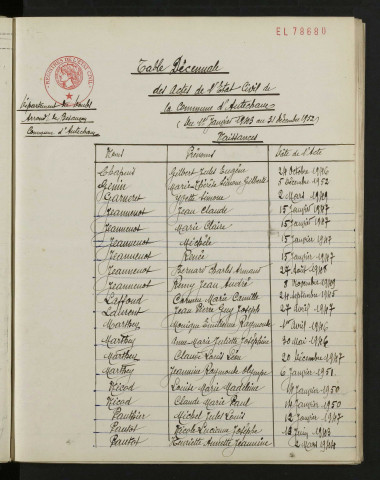 EL 78680
REGISTRES DE L'ETAT CIVIL
Table Décennale
des Actes de l'Etat Civil de
la Commune d'Autechaux
(du 1er Janvier 1943 au 31 Décembre 1952)
Naissances
Département du Doubs
Arrondt de Besançon
Commune d'Autechaux
Noms Prénoms Date de l'Acte
Chapuis Gilbert Jules Eugène 24 Octobre 1946
Génin Marie-Thérèse Simone Gilberte 5 Décembre 1952
Garneret Yvette Simone 2 Mars 1949
Jeannenot Jean Claude 15 Janvier 1947
Jeannenot Marie Claire 15 Janvier 1947
Jeannenot Michèle 15 Janvier 1947
Jeannenot Renée 15 Janvier 1947
Jeannenot Bernard Charles Armand 27 Août 1948
Jeannenot Rémy Jean André 8 Novembre 1949
Laffond Marie Camille 24 Septembre 1945
Laurent Jean Pierre Guy Joseph 27 Août 1947
Marthey Monique Emilienne Raymonde 1er Avril 1946
Marthey Anne-Marie Juliette Joséphine 30 Mai 1946
Marthey Claude Louis Léon 20 Décembre 1947
Marthey Jeannine Raymonde Olympe 6 Janvier 1951
Nicod Louise Marie Madeleine 14 Janvier 1950
Nicod Claude Marie Paul 14 Janvier 1950
Pauthier Michel Jules Louis 12 Janvier 1947
Pautot Nicole Lucienne Josèphe 13 Juin 1943
Pautot Henriette Annette Jeannine 2 Mars 1944